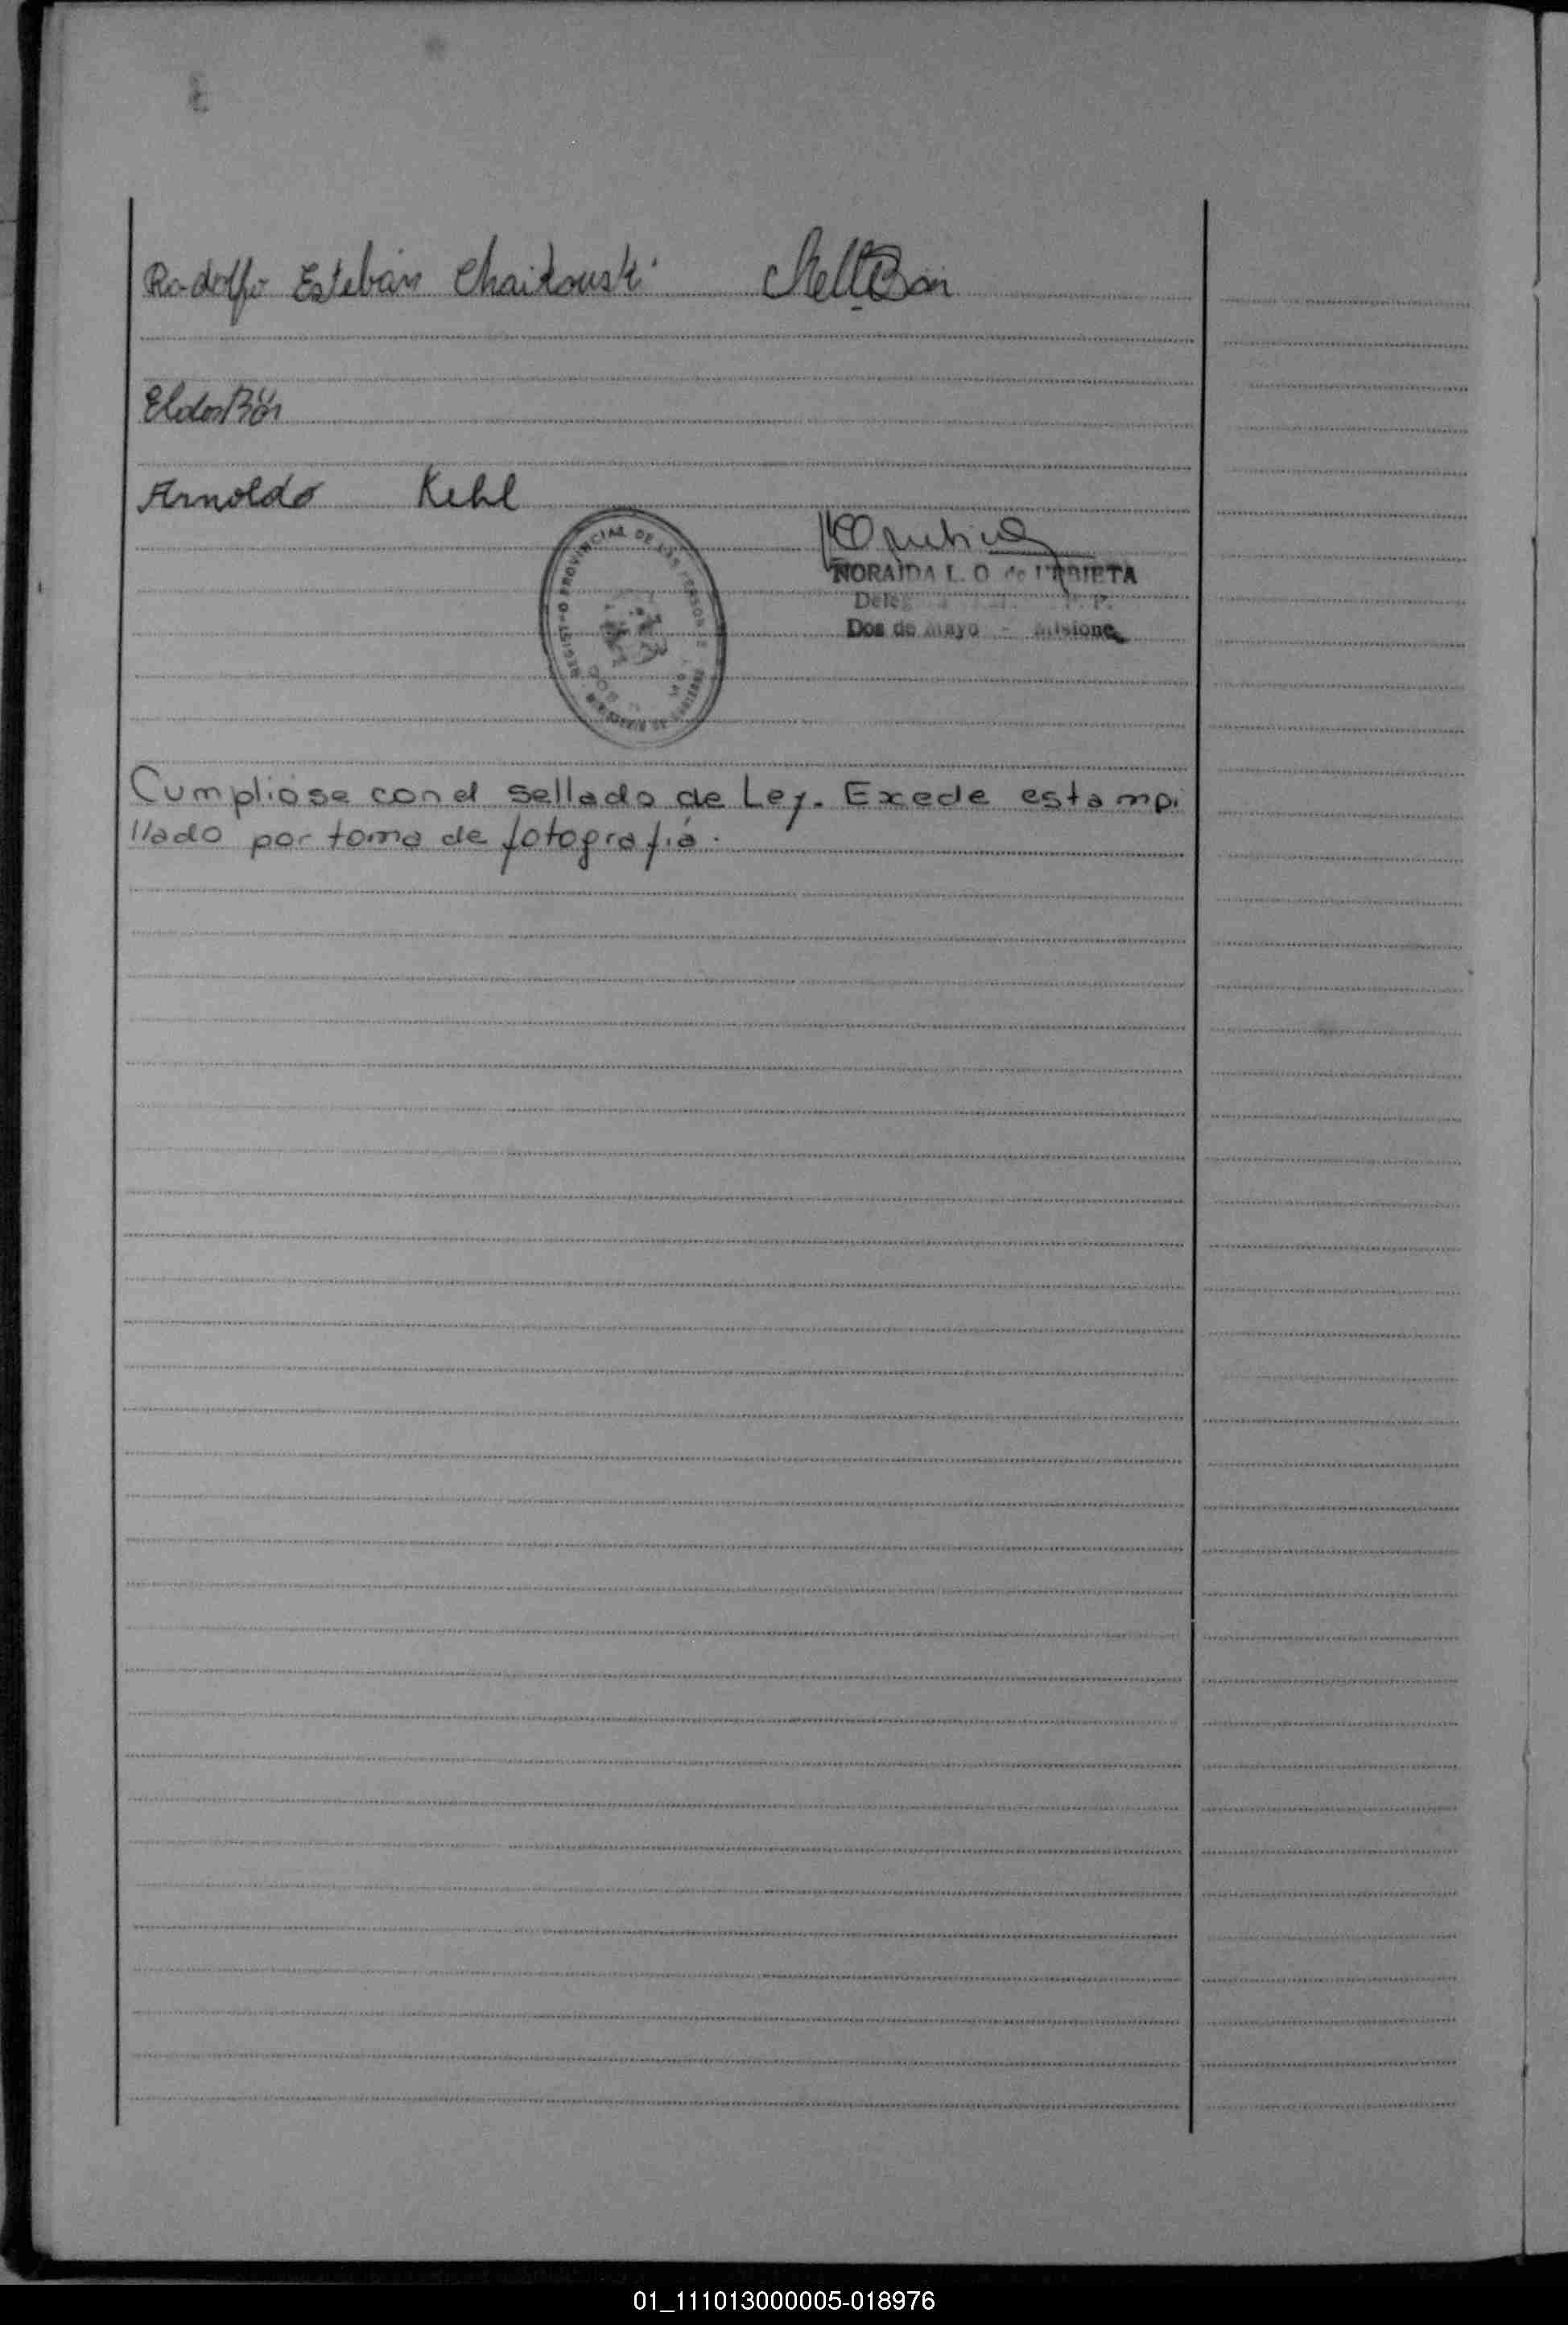 Rodolfo Esteban Chaikouski
Arnoldo Kehl
REGISTRO PROVINCIAL DE LAS PERSONAS
NORAIDA L. O. de URBIETA
Dos de Mayo - Misiones
Cumpliose con el sellado de Ley. Exede estampi
llado por toma de fotografia.
01_111013000005-018976